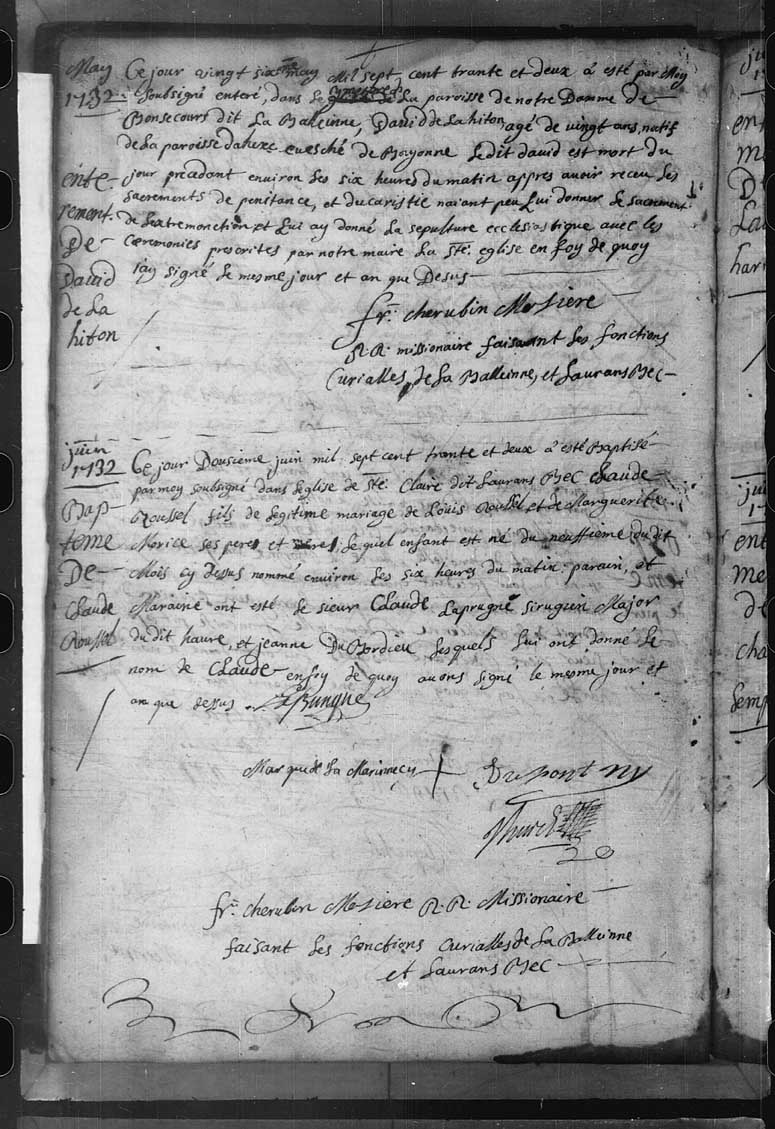 May
1732
Ce jour vingt sixme may Mil sept cent trante et deux a esté par Moy
soubsigné enteré, dans le de La paroisse de notre Damme De
Bonsecours dit La Balleinne, David de La hiton agé de vingt ans, natif
de La paroisse evesché de Bayonne Ledit david est mort du
jour precedant environ les six heures du matin appres avoir receu les
sacrements de penitance, et ducaristie naiant peu Lui donner le sacrement
de Lextremonction et Lui ay donné La sepulture ecclesiastique avec les
Cæremonies prescrites par notre maire La Ste. eglise en foy de quoy
jay signé le mesme jour et an que Desus
ente-
rement
De
David
de La
hiton
fr. cherubin Mesiere
R. R. missionaire faisant les fonctions
Curialles de La Balleinne, et Laurans Bec
juin
1732
Ce jour Dousieme juin mil sept cent trante et deux a esté Baptisé
par moy soubsigné dans leglise de Ste. Claire dit Laurans Bec Claude
Roussel fils de legitime mariage de Louis Roussel et de Marguerite
Morice ses peres et meres, Lequel enfant est né du neuftieme du dit
Mois cy dessus nommé environ les six heures du matin. parain, et
Maraine ont esté le sieur Claude Laprugne sirugien Major
du dit havre, et jeanne DuBordieu lesquels Lui ont donné le
nom de Claude en foy de quoy avons signé le mesme jour et
an que dessus.
Bap-
teme
De
Claude
Roussel
Marque de La Marinne cy + Dupont
fr. cherubin Mesiere R. R. Missionaire
faisant les fonctions Curialles de La Balleinne
et Laurans Bec